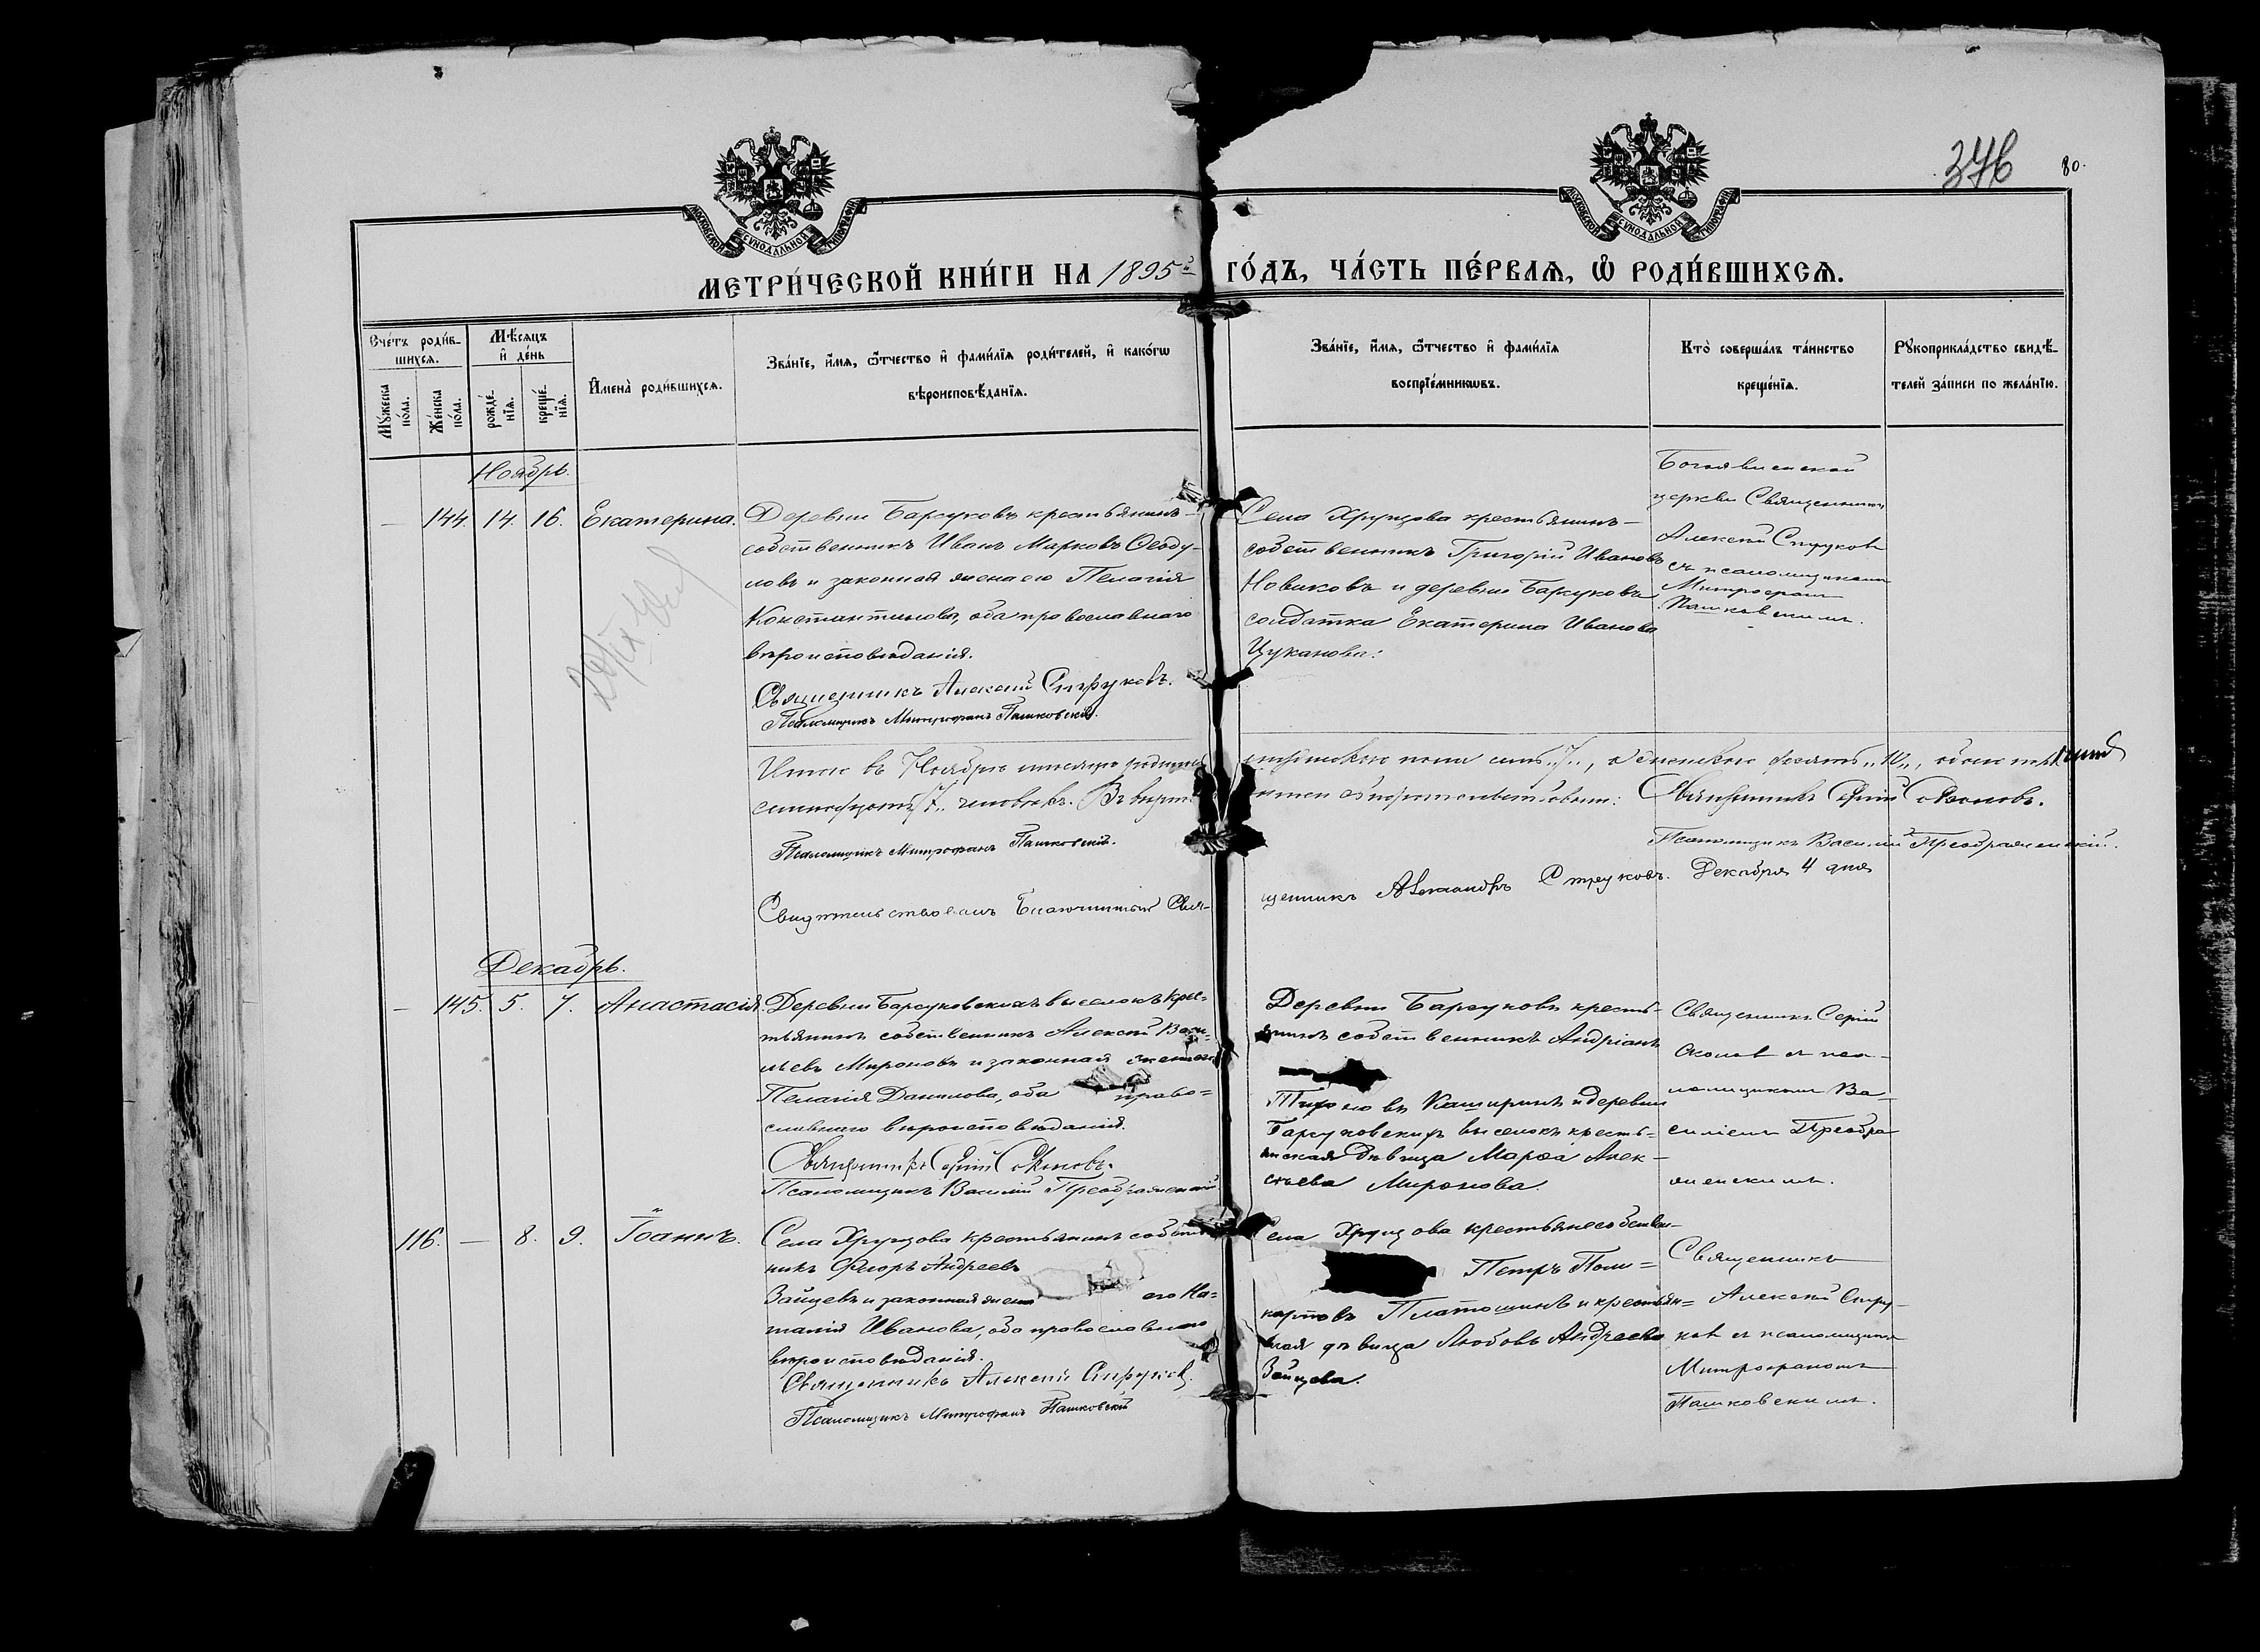 376 80.
МОСКОВСКОЙ СУНОДАЛЬНОЙ ТИПОГРАФІИ
МОСКОВСКОЙ СУНОДАЛЬНОЙ ТИПОГРАФІИ
МЕТРИ́ЧЕСКОЙ КНИ́ГИ НА 1895й ГО́ДЪ, ЧА́СТЬ ПЕ́РВАѦ, Ѡ РОДИ́ВШИХСѦ.
Сче́тъ роди́в-
шихсѧ.
Мꙋжеска по́ла.
Же́нска по́ла.
Мѣсѧцъ
и де́нь
рожде́-
нїѧ.
креще́-
нїѧ.
Имена̀ роди́вшихсѧ.
Зва́нїе, и́мѧ, ѿтчество и фами́лїѧ роди́телей, и како́гѡ
вѣроисповѣданїѧ.
Зва́нїе, и́мѧ, ѿтчество и фами́лїѧ
воспрїе́мникѡвъ.
Кто̀ соверша́лъ та́инство
креще́нїѧ.
Рꙋкоприкла́дство свидѣ-
телей за́писи по жела́нїю.
Ноябрь.
— 144. 14. 16. Екатерина.
Деревни Барсуковъ крестьянинъ-
собственникъ Иванъ Марковъ Ѳеоду-
ловъ и законная жена его Пелагія
Константинова, оба православнаго
вѣроисповѣданія.
Священникъ Алексій Струковъ.
Псаломщикъ Митрофанъ Пашковскій.
Села Хрущова крестьянинъ-
собственникъ Григорій Ивановъ
Новиковъ и деревни Барсуковъ
солдатка Екатерина Иванова
Цуканова.
Богоявленской
церкви Священникъ
Алексій Струковъ
съ псаломщикомъ
Митрофаномъ
Пашковскимъ.
Итого въ Ноябрѣ мѣсяцѣ родилось мужескаго пола семь „7„, а женскаго десять „10„, обоего пола
семнадцать „17„ человѣкъ. Священникъ Сергій Соколовъ.
Псаломщикъ Митрофанъ Пашковскій. Псаломщикъ Василій Преображенскій.
Свидѣтельствовалъ Благочинный Свя-щенникъ Александръ Струковъ. Декабря 4 дня
Декабрь.
— 145. 5. 7. Анастасія.
Деревни Барсуковскихъ выселокъ крес-
тьянинъ собственникъ Алексѣй Васи-
льевъ Мироновъ и законная жена его
Пелагія Данилова, оба право-
славнаго вѣроисповѣданія.
Священникъ Сергій Соколовъ.
Псаломщикъ Василій Преображенскій
Деревни Барсуковъ кресть-
янинъ собственникъ Андріанъ
Каширинъ и деревни
Барсуковскихъ выселокъ кресть-
янская дѣвица Марѳа Алек-
сѣева Миронова.
Священникъ Сергій
Соколовъ съ пса-
ломщикомъ Ва-
силіемъ Преобра
женскимъ.
116. — 8. 9. Іоаннъ.
Села Хрущова крестьянинъ собствен
никъ Ѳеодоръ Андреевъ
Зайцевъ и законная жена его На-
талія Иванова, оба православнаго
вѣроисповѣданія.
Священникъ Алексій Струковъ.
Псаломщикъ Митрофанъ Пашковскій
Села Хрущова крестьяне собствен-
Петръ Поли-
карповъ Платошинъ и крестьян-
ская дѣвица Любовь Андреева
Зайцева.
Священникъ
Алексій Стру-
ковъ съ псаломщикомъ
Митрофаномъ
Пашковскимъ.